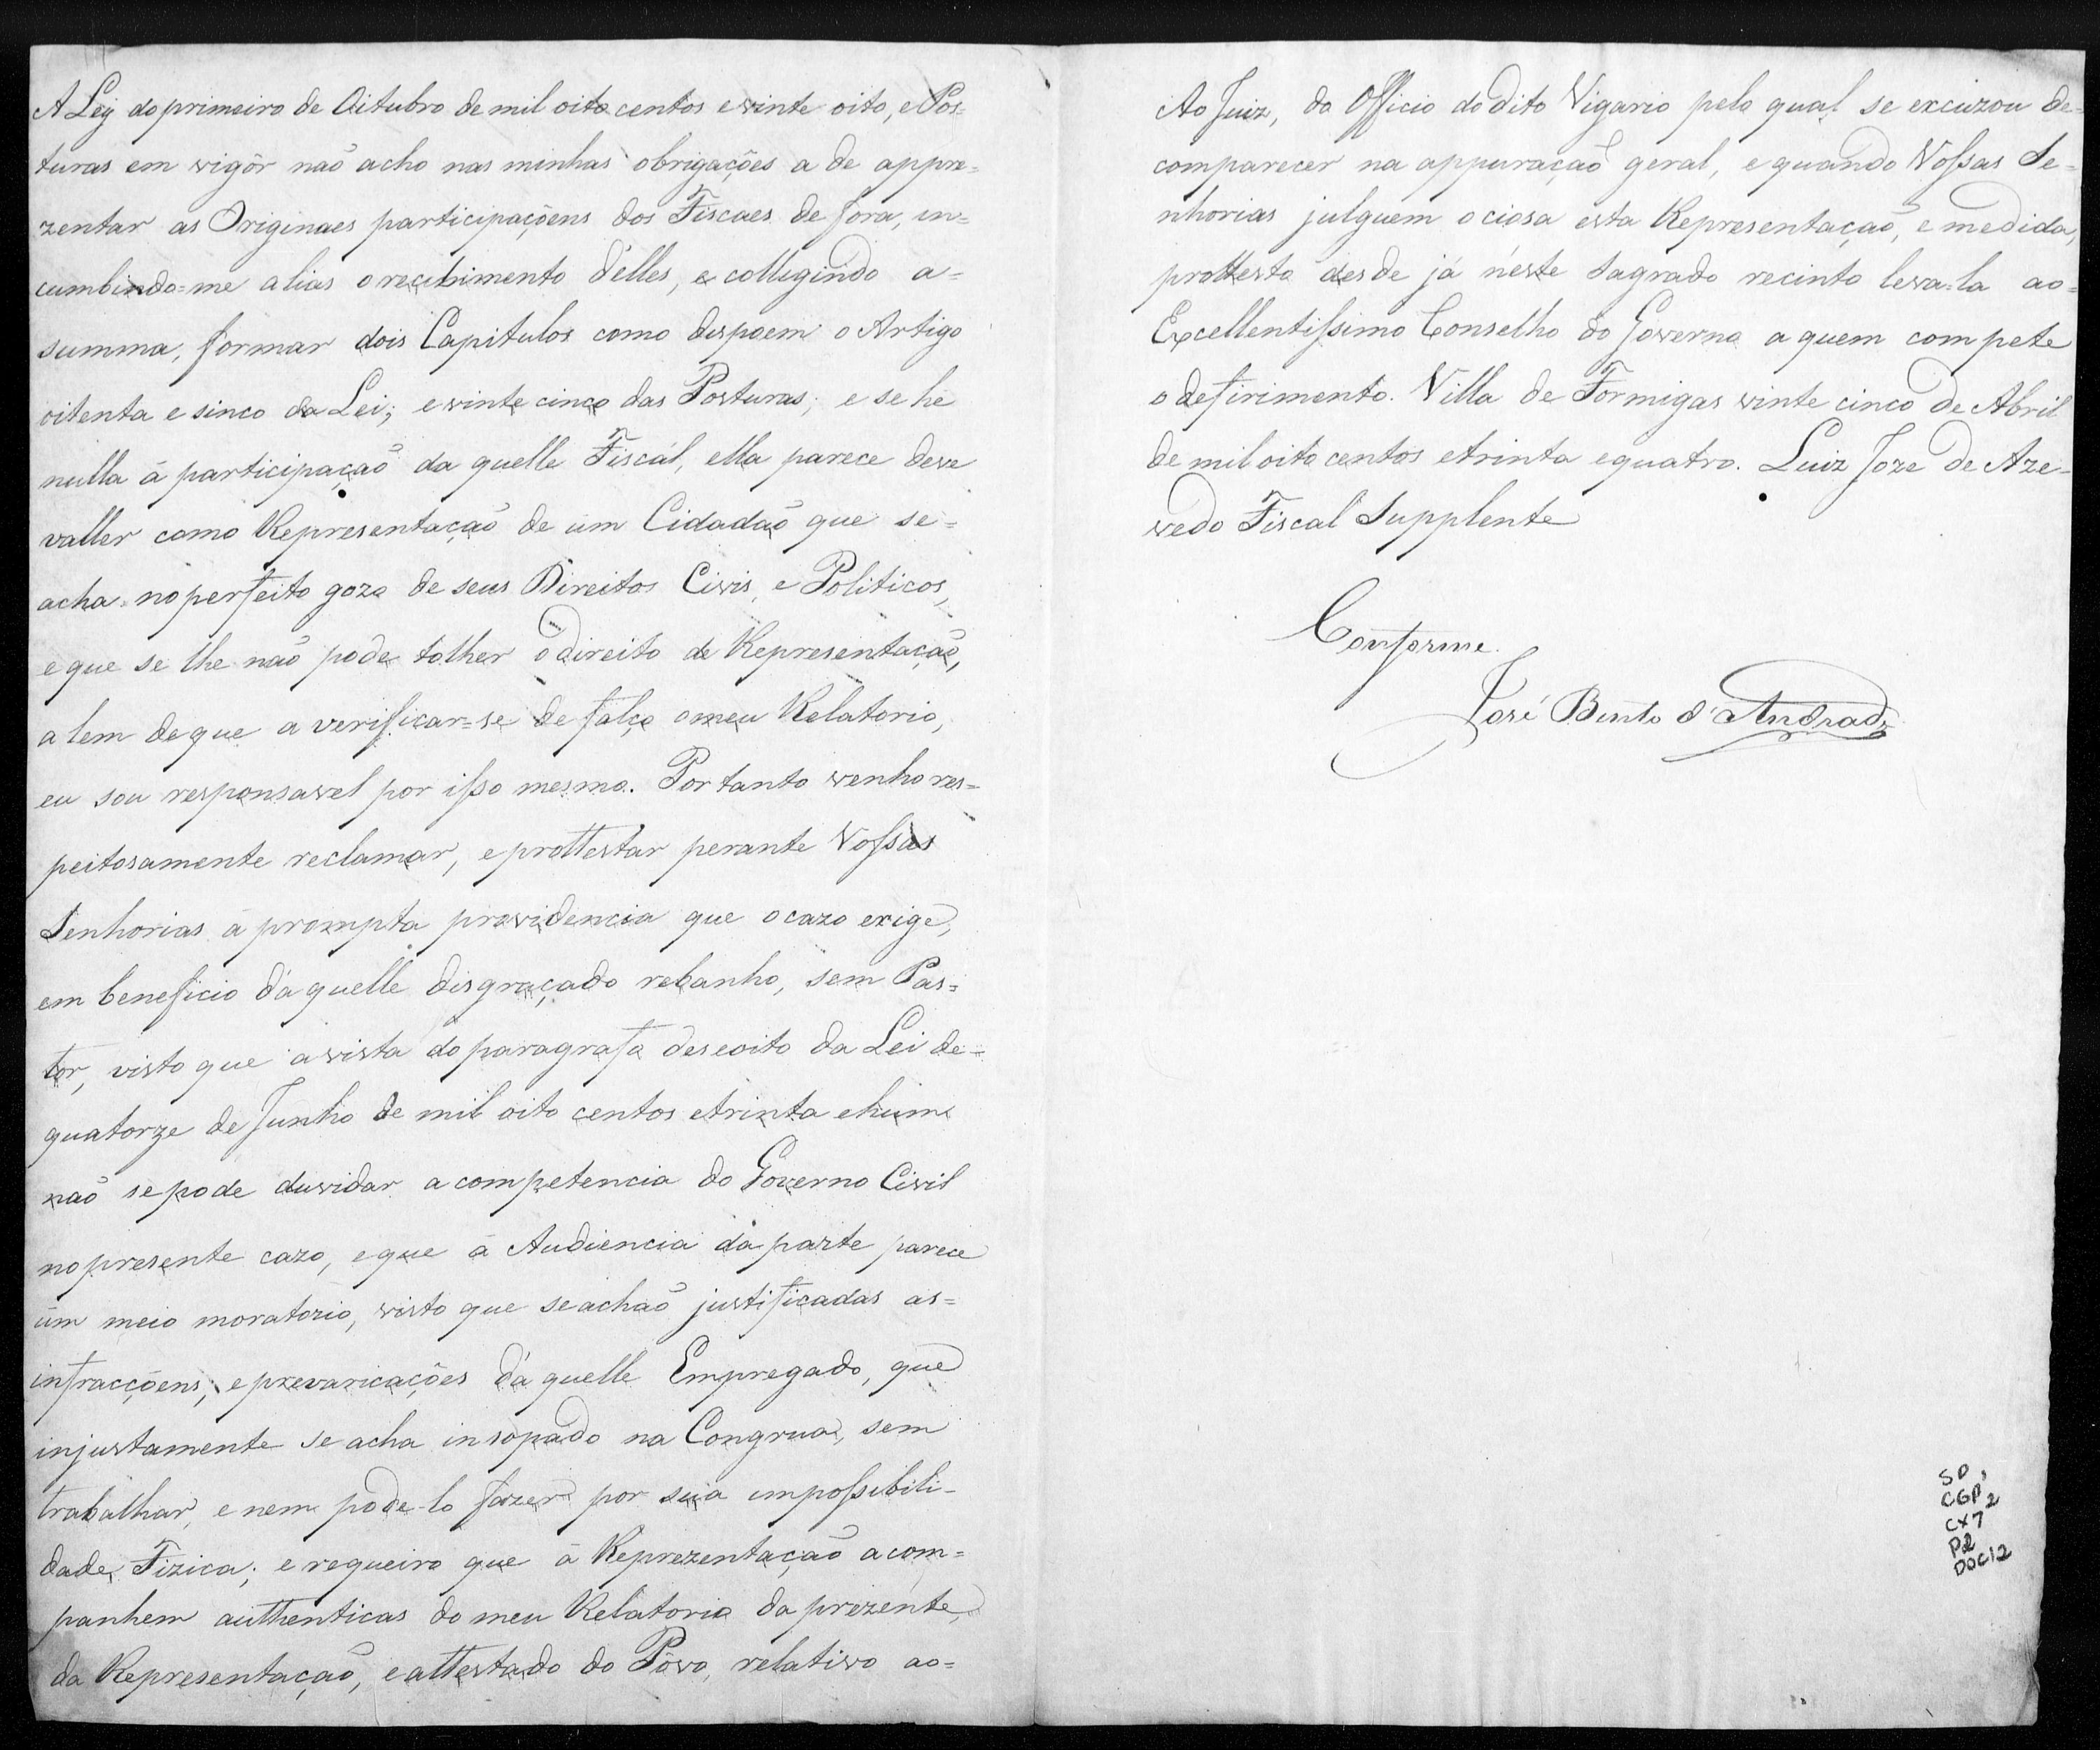 A Ley do primeiro de Oitubro de mil oito centos e vinte oito, e Pos=
turas em vigôr naõ acho nas minhas obrigações a de appre=
zentar as Originaes participaçoens dos Fiscaes de fora, in=
cumbindo=me alias o recebimento d'elles, e colligindo a=
summa, formar dois Capitulos como dispoem o Artigo
oitenta e sinco da Lei; e vinte cinco das Posturas; e se he
nulla á participaçaõ da quelle Fiscál, ella parece deve
valler como Representaçaõ de um Cidadaõ que se=
acha no perfeito gozo de seus Direitos Civis, e Politicos,
e que se lhe naõ pode tolher o direito de Representaçaõ,
a lem de que a verificar=se de falço o meu Relatorio,
eu sou responsavel por isso mesmo. Por tanto venho res=
peitosamente reclamar, e prottestar perante Vossas
Senhorias á prompta providencia que o cazo exige,
em beneficio d'aquelle disgraçado rebanho, sem Pas=
tor, visto que a vista do paragrafo deseoito da Lei de=
quatorze de Junho de mil oito centos e trinta e hum
naõ se pode duvidar a competencia do Governo Civil
no presente cazo, e que á Audiencia da parte parece
úm meio moratorio, visto que se achaõ justificadas as=
infracçoens, e prevaricações d'aquelle Empregado, que
injustamente se acha insopado na Congrua, sem
trabalhar, e nem pode-lo fazer por sua impossibili-
dade Fizica; e requeiro que á Reprezentaçaõ acom=
panhem authenticas do meu Relatorio da prezente,
da Representaçaõ, e attestado do Pôvo, relativo ao=
Ao Juiz, do Officio do dito Vigario pelo qual se excuzou de=
comparecer na appuraçaõ geral, e quando Vossas Se=
nhorias julguem ociosa esta Representaçaõ, e medida,
prottesto desde já n'este Sagrado recinto leva-la ao=
Excellentissimo Conselho do Governo a quem compete
o defirimento. Villa de Formigas vinte cinco de Abril
de mil oito centos e trinta e quatro. Luiz Joze de Aze-
vedo Fiscal Supplente
Conforme.
José Bento d'Andrade
SP,
CGP2
CX7
P2
DOC12